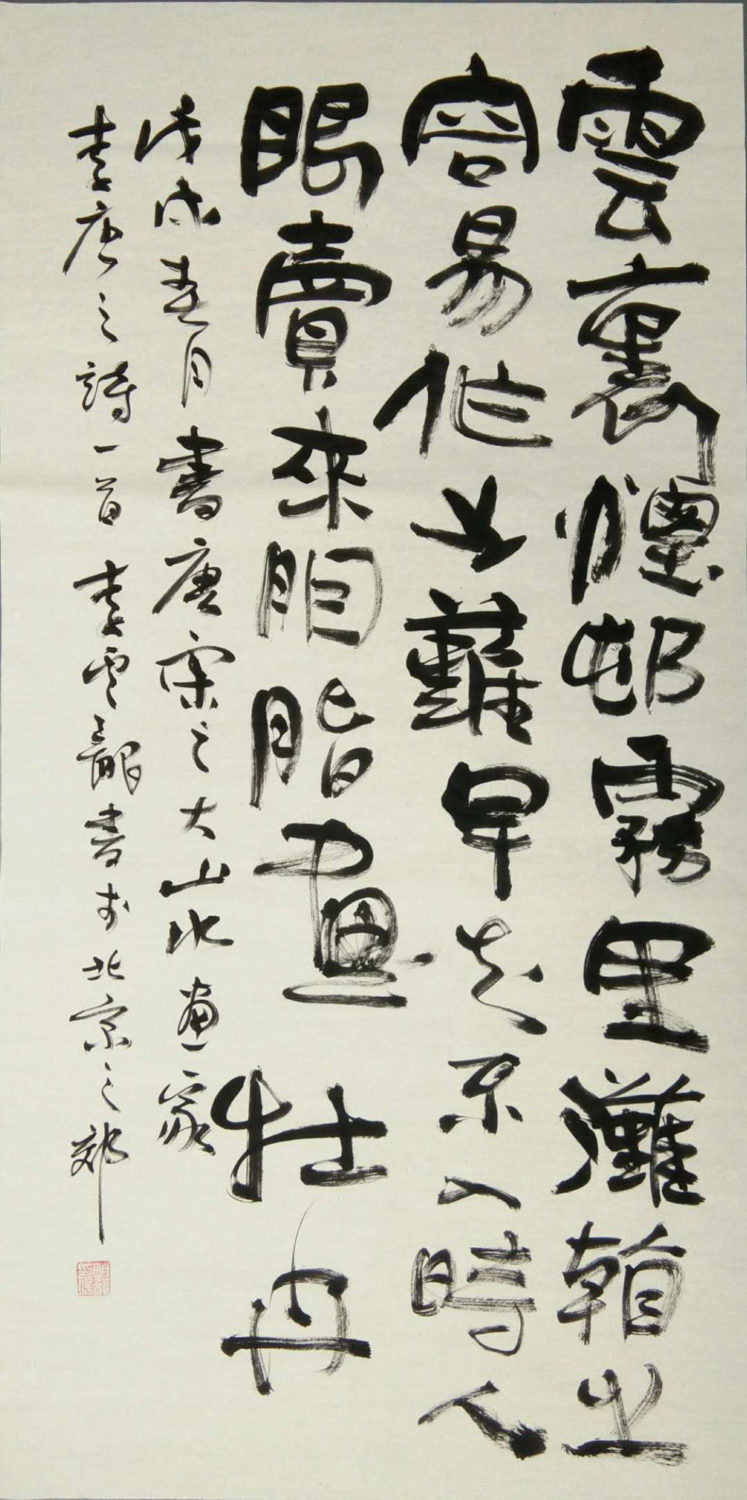 雲裏煙邨霧里灘看之
容易作之難早知不入時人
眼賣來胭脂畫牡丹
戊戌春月書唐宋之大山水画家
李唐之詩一首李雲龍書于北京之郊